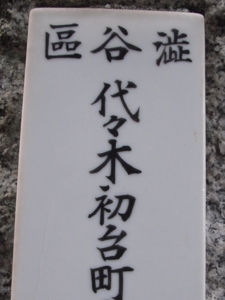 澁谷區
代々木初台町